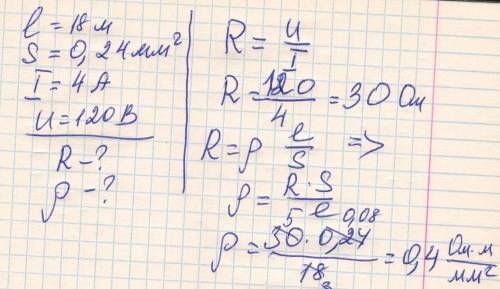 l = 18 м
S = 0,24 мм²
I = 4 А
U = 120 В
R – ?
ρ – ?
R = U/I
R = 120/4 = 30 Ом
R = ρ l/S =>
ρ = R·S/l
5 0,08
ρ = 30·0,24/18 = 0,4 Ом·м/мм²
3